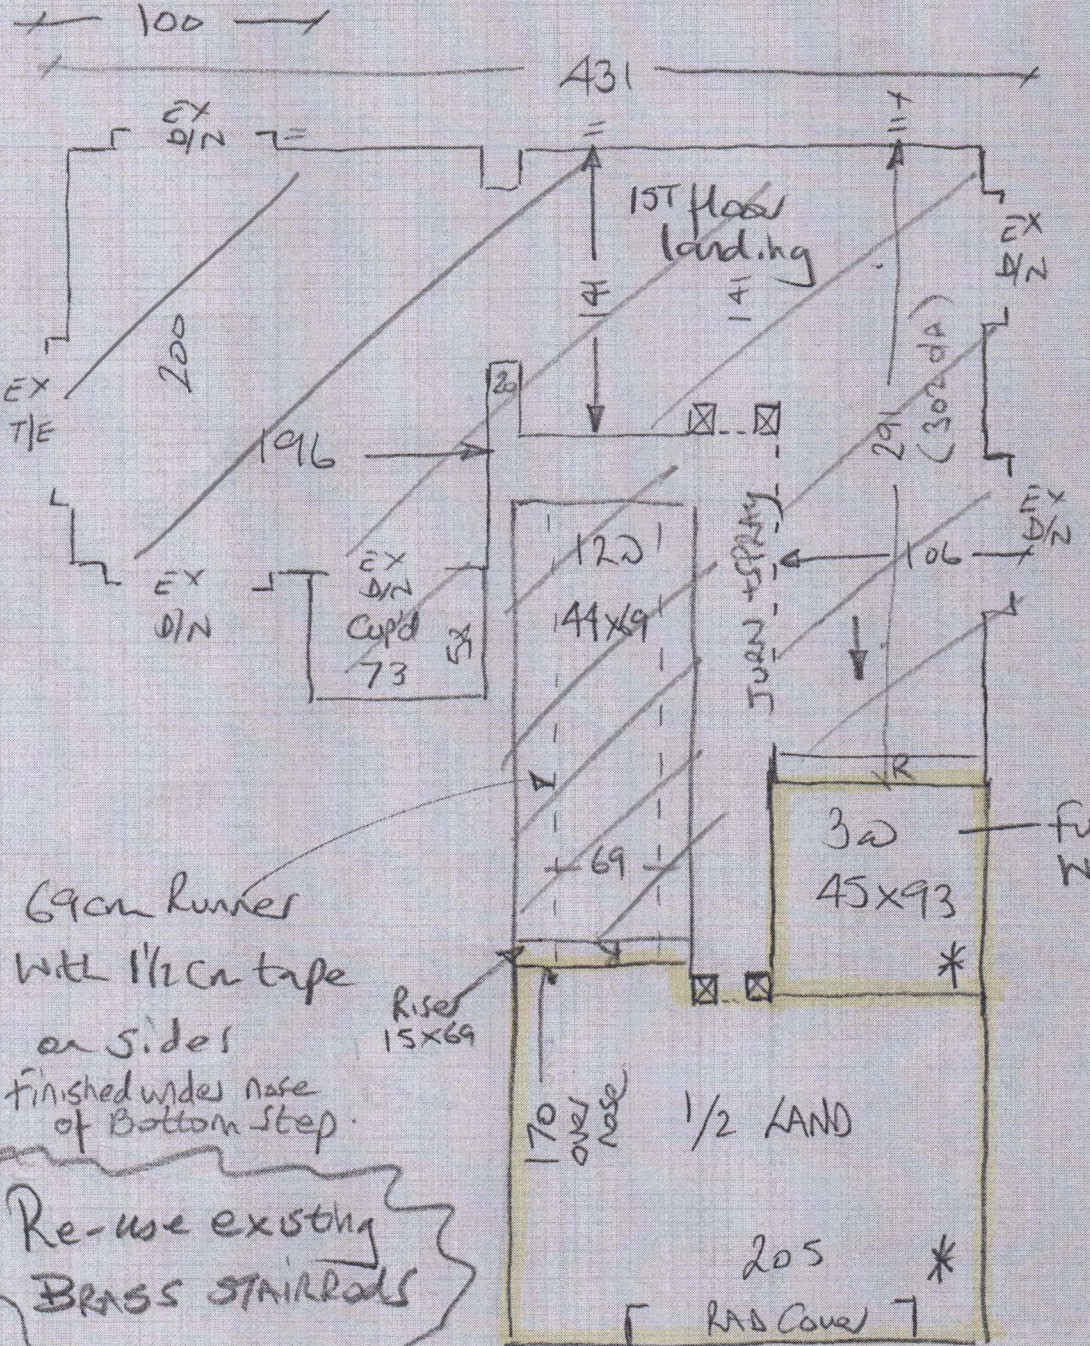 100
431
EX
D/N
1ST floor
landing
141
141
EX
D/N
200
EX
T/E
20
196
291
(302 dA)
EX
D/N
EX
D/N
EX
D/N
Cup'd
73
5x
12W
44x69
TURN + SPRAY
106
R
3W
45x93
*
69
69cm Runner
With 1½cm tape
on sides
finished under nose
of Bottom Step.
Riser
15x69
170
over
nose
1/2 LAND
Re-use existing
BRASS STAIRRODS
205
*
RAD Cover